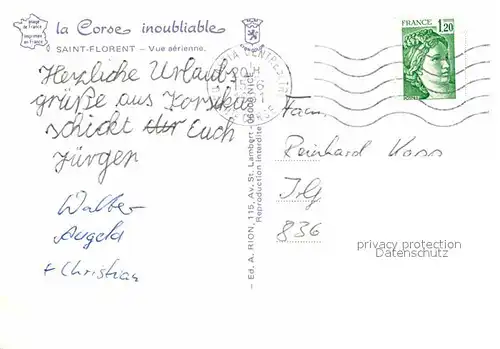 la Corse inoubliable
SAINT-FLORENT - Vue aérienne.
Herzliche Urlaubs
grüße aus Korsika
schickt Euch
Jürgen
Walter
Angela
+ Christian
- Ed. A. RION, 115, Av. St. Lambert - 06000 NICE
Reproduction interdite
FRANCE
1,20
Fam.
Reinhard
836
privacy protection
Datenschutz